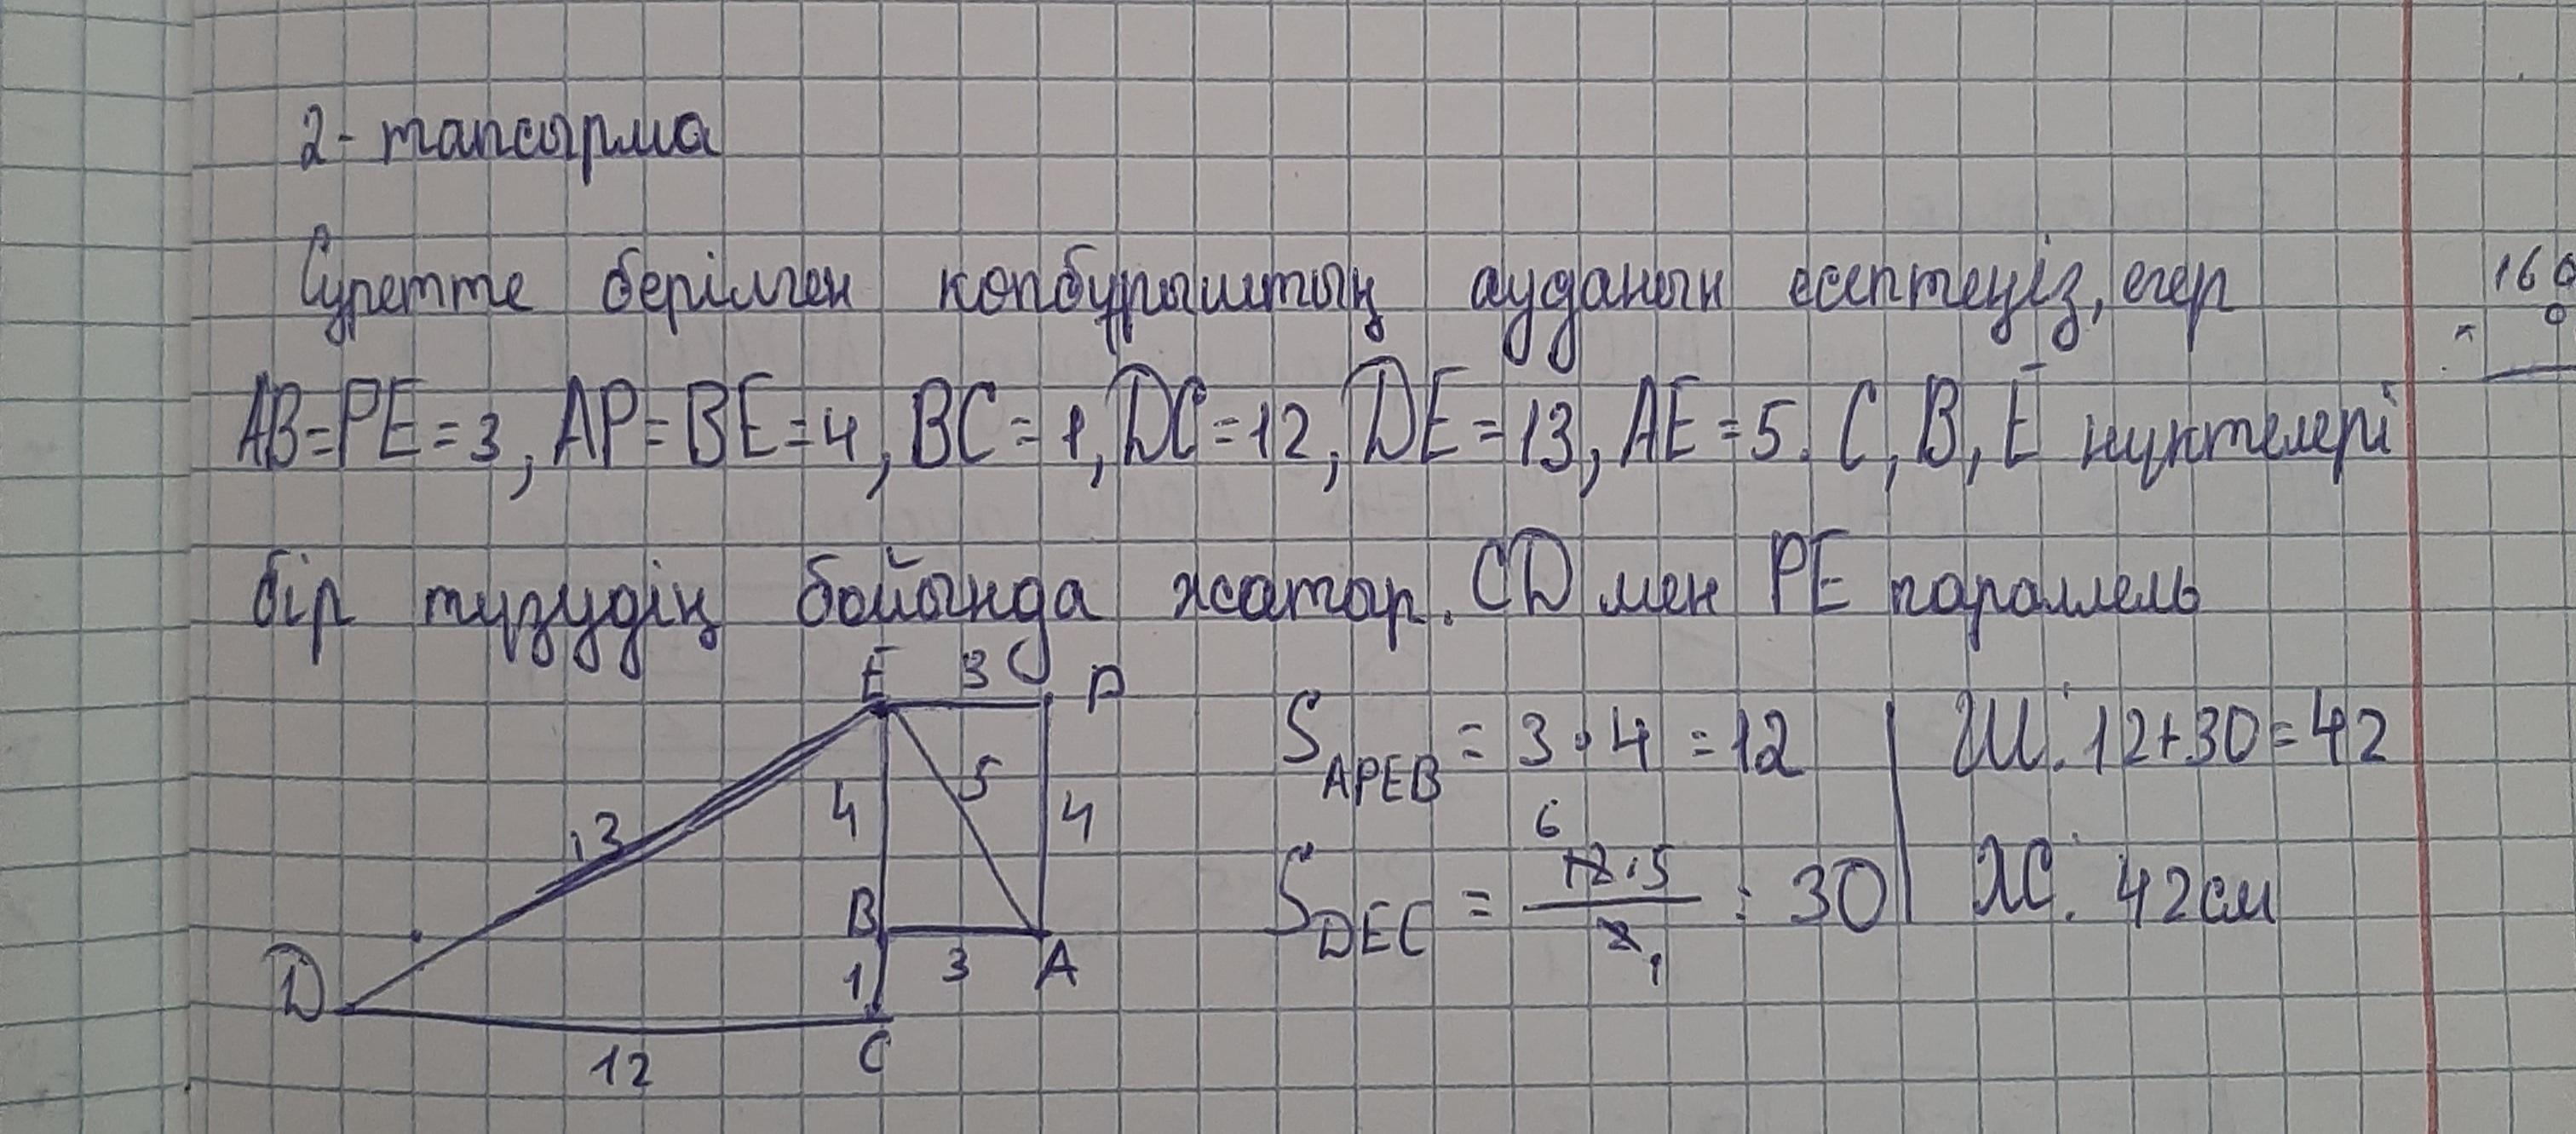 2-тапсырма
Суретте берілген көпбұрыштың ауданын есептеңіз, егер
AB=PE=3, AP=BE=4, BC=1, DC=12, DE=13, AE=5. C, B, E нүктелері
бір түзудің бойында жатыр. CD мен PE параллель
E 3 P
S_APEB = 3·4 = 12 | Ш. 12+30=42
13 4 5 4
S_DEC = 12·5/2 = 30 | Ж. 42см
6
1
D B 3 A
1
12 C
160